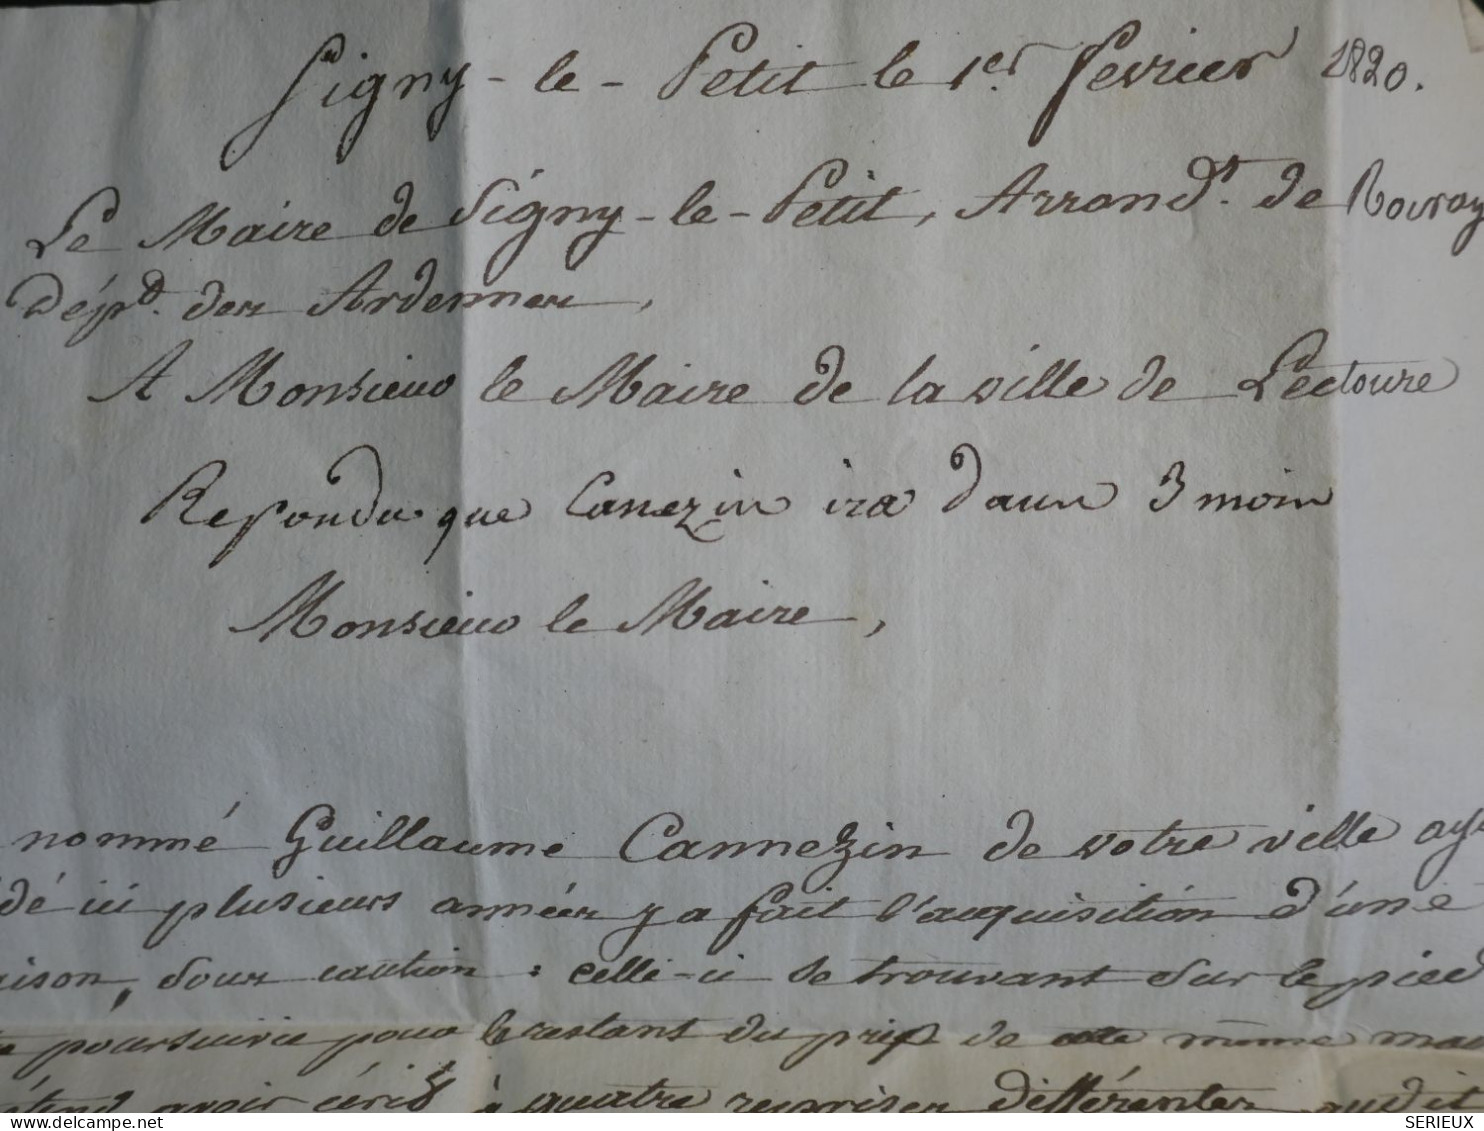 Signy-le-Petit le 1er fevrier 1820.
Le Maire de Signy-le-Petit, Arrondt. de Rocroy
Dépt. des Ardennes,
A Monsieur le Maire de la ville de Lectoure
Repondu que Canezin ira dans 3 mois
Monsieur le Maire,
nommé Guillaume Cannezin de votre ville ay
dé ici plusieurs années y a fait l'acquisition d'une
aison, sous caution : celle-ci se trouvant sur le pied
poursuivie pour le restant du prix de cette même mai
avoir écrit à quatre reprises différentes audit
SERIEUX
delcampe.net